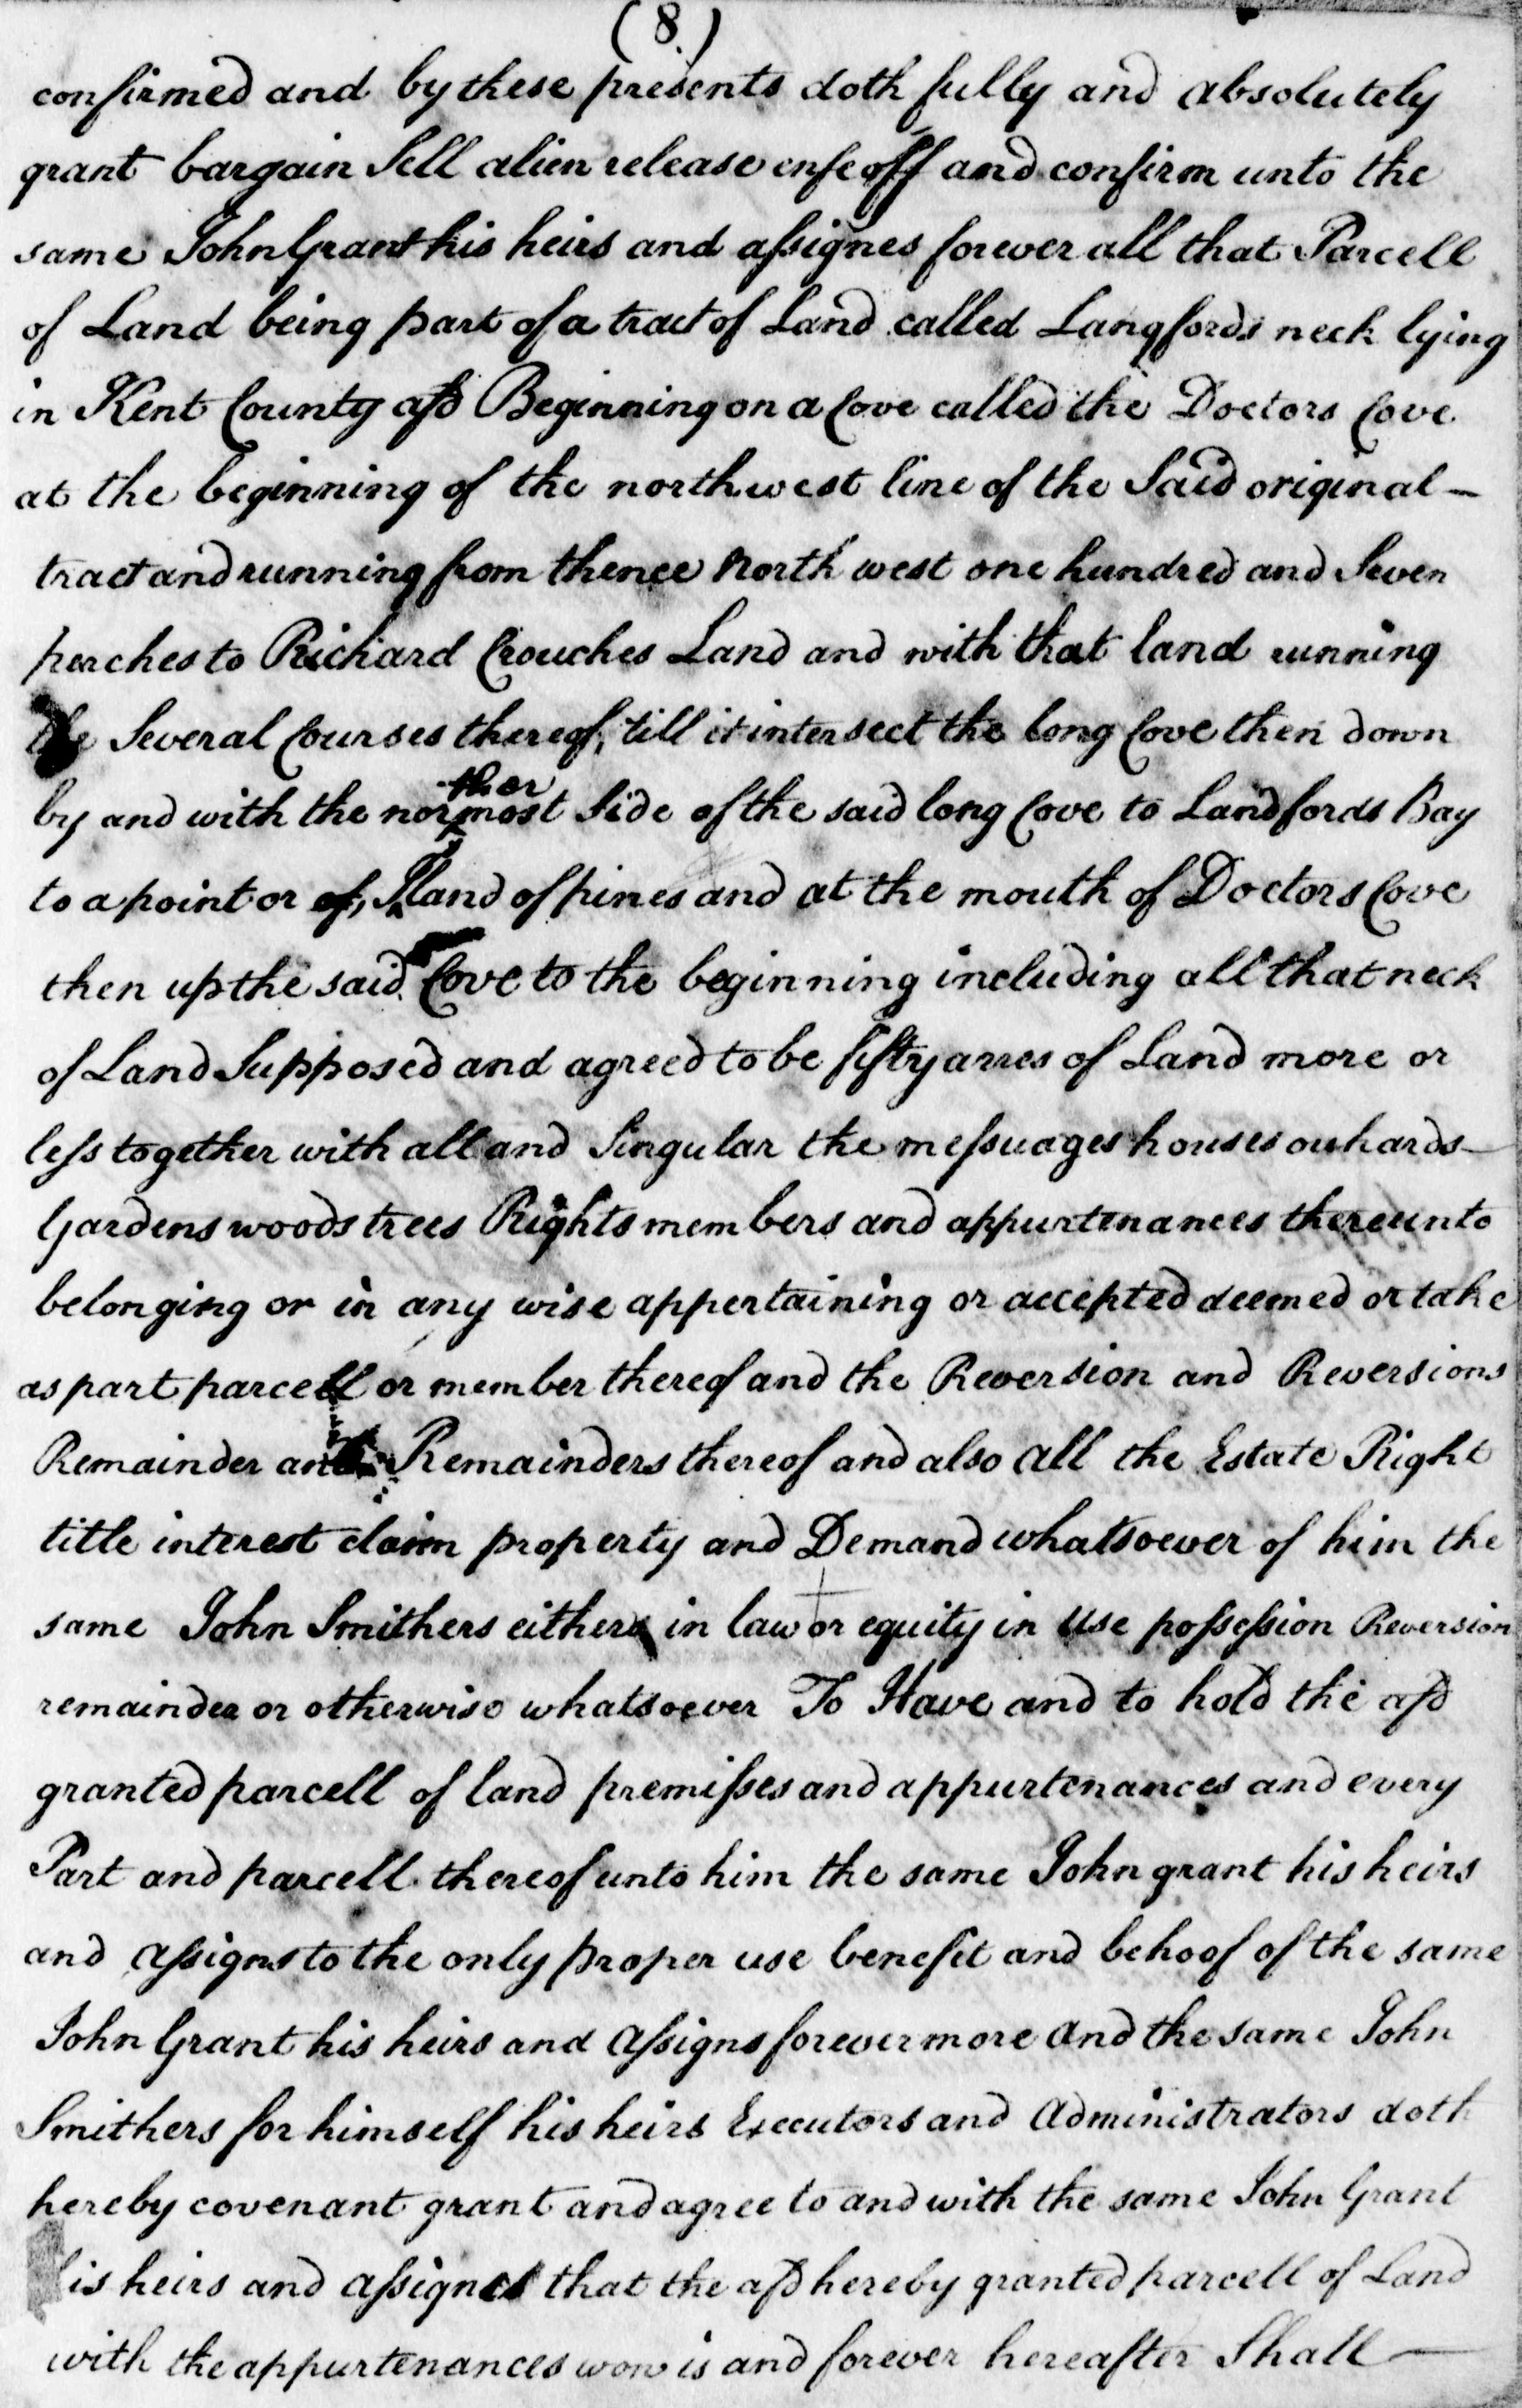 (8.)
confirmed and by these presents doth fully and absolutely
grant bargain Sell alien release enfeoff and confirm unto the
same John Grant his heirs and assignes forever all that Parcell
of Land being part of a tract of Land called Langfords neck lying
in Kent County afd Beginning on a Cove called the Doctors Cove
at the beginning of the northwest line of the Said original –
tract and running from thence North west one hundred and Seven
perches to Richard Crouches Land and with that land running
the Several Courses thereof, till it intersect the long Cove then down
by and with the northermost Side of the said long Cove to Landfords Bay
to a point or of, Iland of pines and at the mouth of Doctors Cove
then up the said Cove to the beginning including all that neck
of Land Supposed and agreed to be fifty arres of Land more or
less together with all and Singular the messuages houses orchards –
Gardens woods trees Rights members and appurtenances thereunto
belonging or in any wise appertaining or accepted deemed or take
as part parcell or member thereof and the Reversion and Reversions
Remainder and Remainders thereof and also all the Estate Right
title interest claim property and Demand whatsoever of him the
same John Smithers either in law or equity in Use possession Reversion
remainder or otherwise whatsoever To Have and to hold the afd
granted parcell of land premisses and appurtenances and every
Part and parcell thereof unto him the same John grant his heirs
and assigns to the only proper use benefit and behoof of the same
John Grant his heirs and assigns forevermore and the same John
Smithers for himself his heirs Executors and Administrators doth
hereby covenant grant and agree to and with the same John Grant
his heirs and assignes that the afd hereby granted parcell of Land
with the appurtenances won is and forever hereafter Shall –